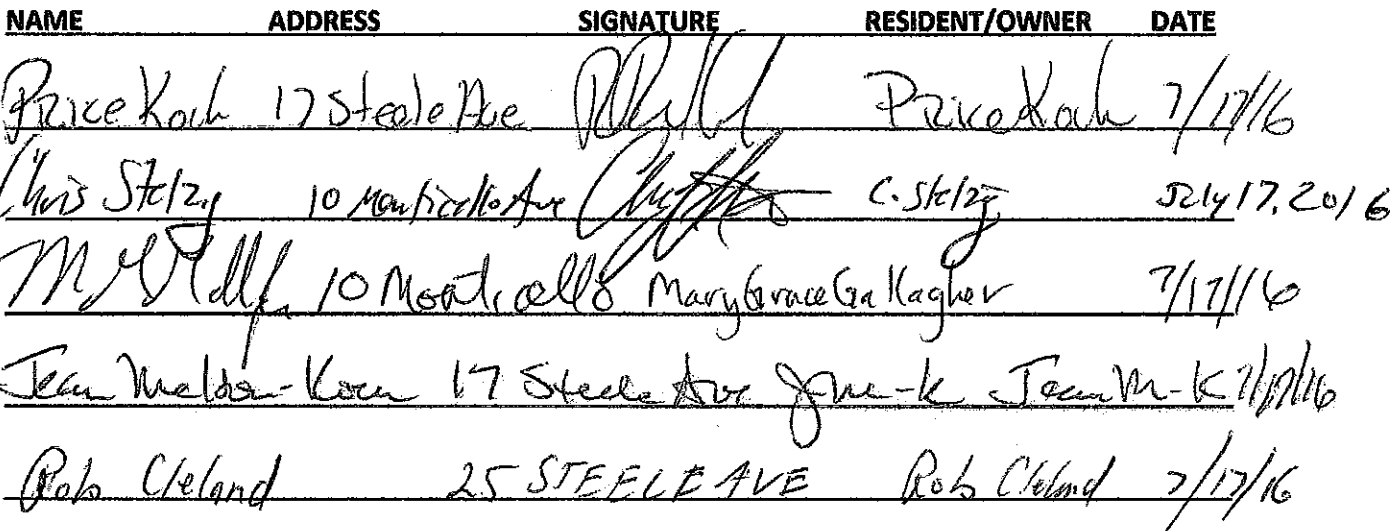 NAME ADDRESS SIGNATURE RESIDENT/OWNER DATE
Price Koch 17 Steele Ave Price Koch 7/17/16
Chris Stelzig 10 Monticello Ave C. Stelzig July 17, 2016
10 Monticello Mary Grace Gallagher 7/17/16
Jean 17 Steele Ave J M-K Jean M-K 7/17/16
Rob Cleland 25 STEELE AVE Rob Cleland 7/17/16